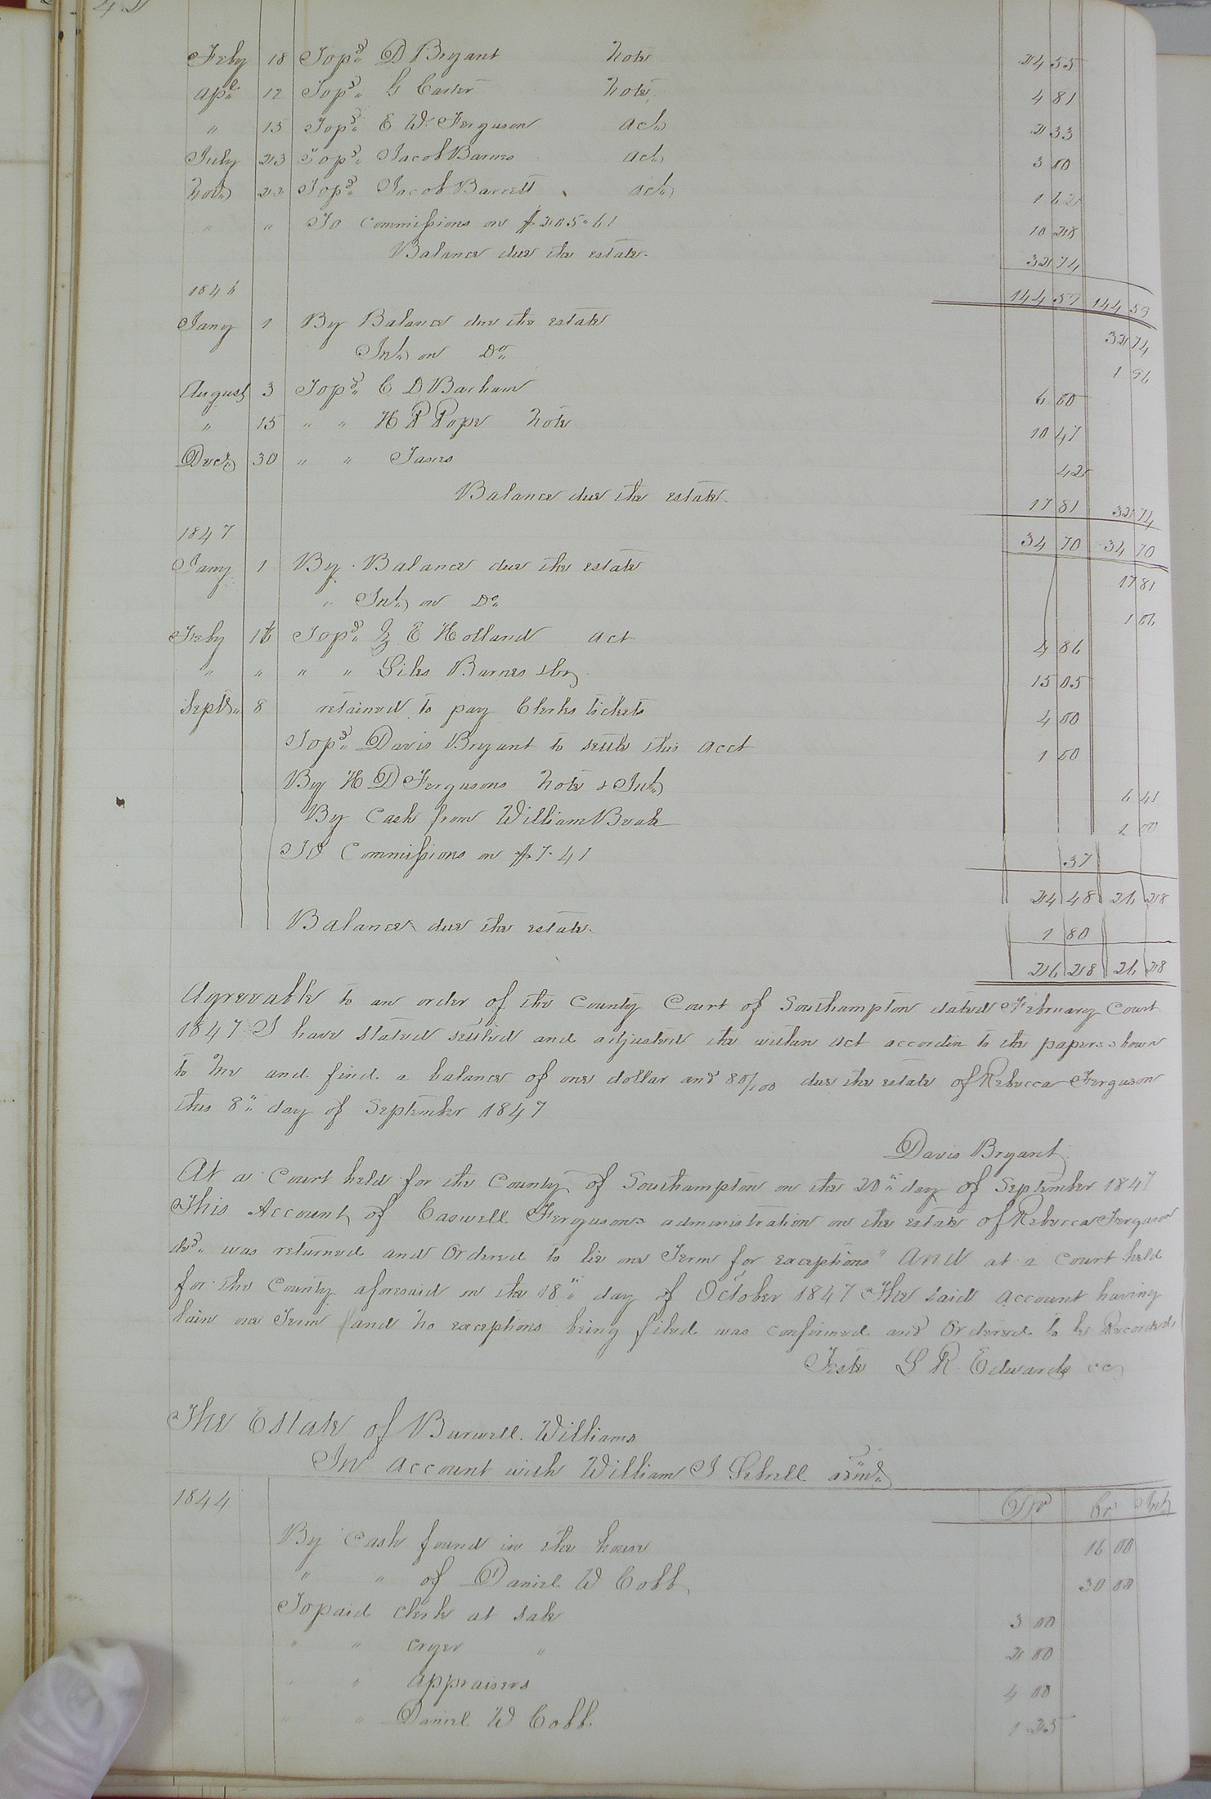 Feby 18 To pd. D Bryant Note 24 55
Apl. 12 To pd. G Carter Note 4 81
" 15 To pd. E W Ferguson act 2 33
July 23 To pd. Jacob Barnes act 3 00
Nov 22 To pd. Jacob Barrett act 1 62
" " To Commissions on $205.61 10 28
Balance due the estate. 32 74
1846 144 59 144 59
Jany 1 By Balance due the estate 32 74
Int on Do 1 96
August 3 To pd. C D Barham 6 00
" 15 " " H P Pope Note 10 47
Dect 30 " " Taxes 42
Balance due the estate. 17 81 32 74
1847 34 70 34 70
Jany 1 By Balance due the estate 17 81
" Int on Do 1 06
Feby 16 To pd. Z E Holland act 4 86
" " " " Giles Barnes 15 05
Septr. 8 retained to pay Clerks tickets 4 00
To pd. Davis Bryant to settle this acct 1 00
By H D Fergusons Note & Int 6 41
By Cash from William Beale 1 00
To Commissions on $7.41 37
24 48 26 28
Balance due the estate. 1 80
26 28 26 28
Agreeable to an order of the County Court of Southampton dated February Court
1847 I have stated settled and adjusted the within act accordin to the papers shown
to Me and find a balance of one dollar and 80/100 due the estate of Rebecca Ferguson
this 8" day of September 1847
Davis Bryant
At a Court held for the County of Southampton on the 20" day of September 1847
This Account of Caswell Fergusons administration on the estate of Rebecca Ferguson
decd. was returned and Ordered to lie one Term for exceptions" And at a Court held
for the County aforesaid on the 18" day of October 1847 The said account having
lain one Term and no exceptions being filed was confirmed and Ordered to be Recorded
Teste L R Edwards cc
The Estate of Burwell Williams
In account with William J Sebrell admr
1844 Dr Cr Int
By Cash found in the house 16 00
" " of Daniel W Cobb 30 00
To paid clerk at sale 3 00
" " cryer " 2 00
" " appraisers 4 00
" " Daniel W Cobb. 1 25